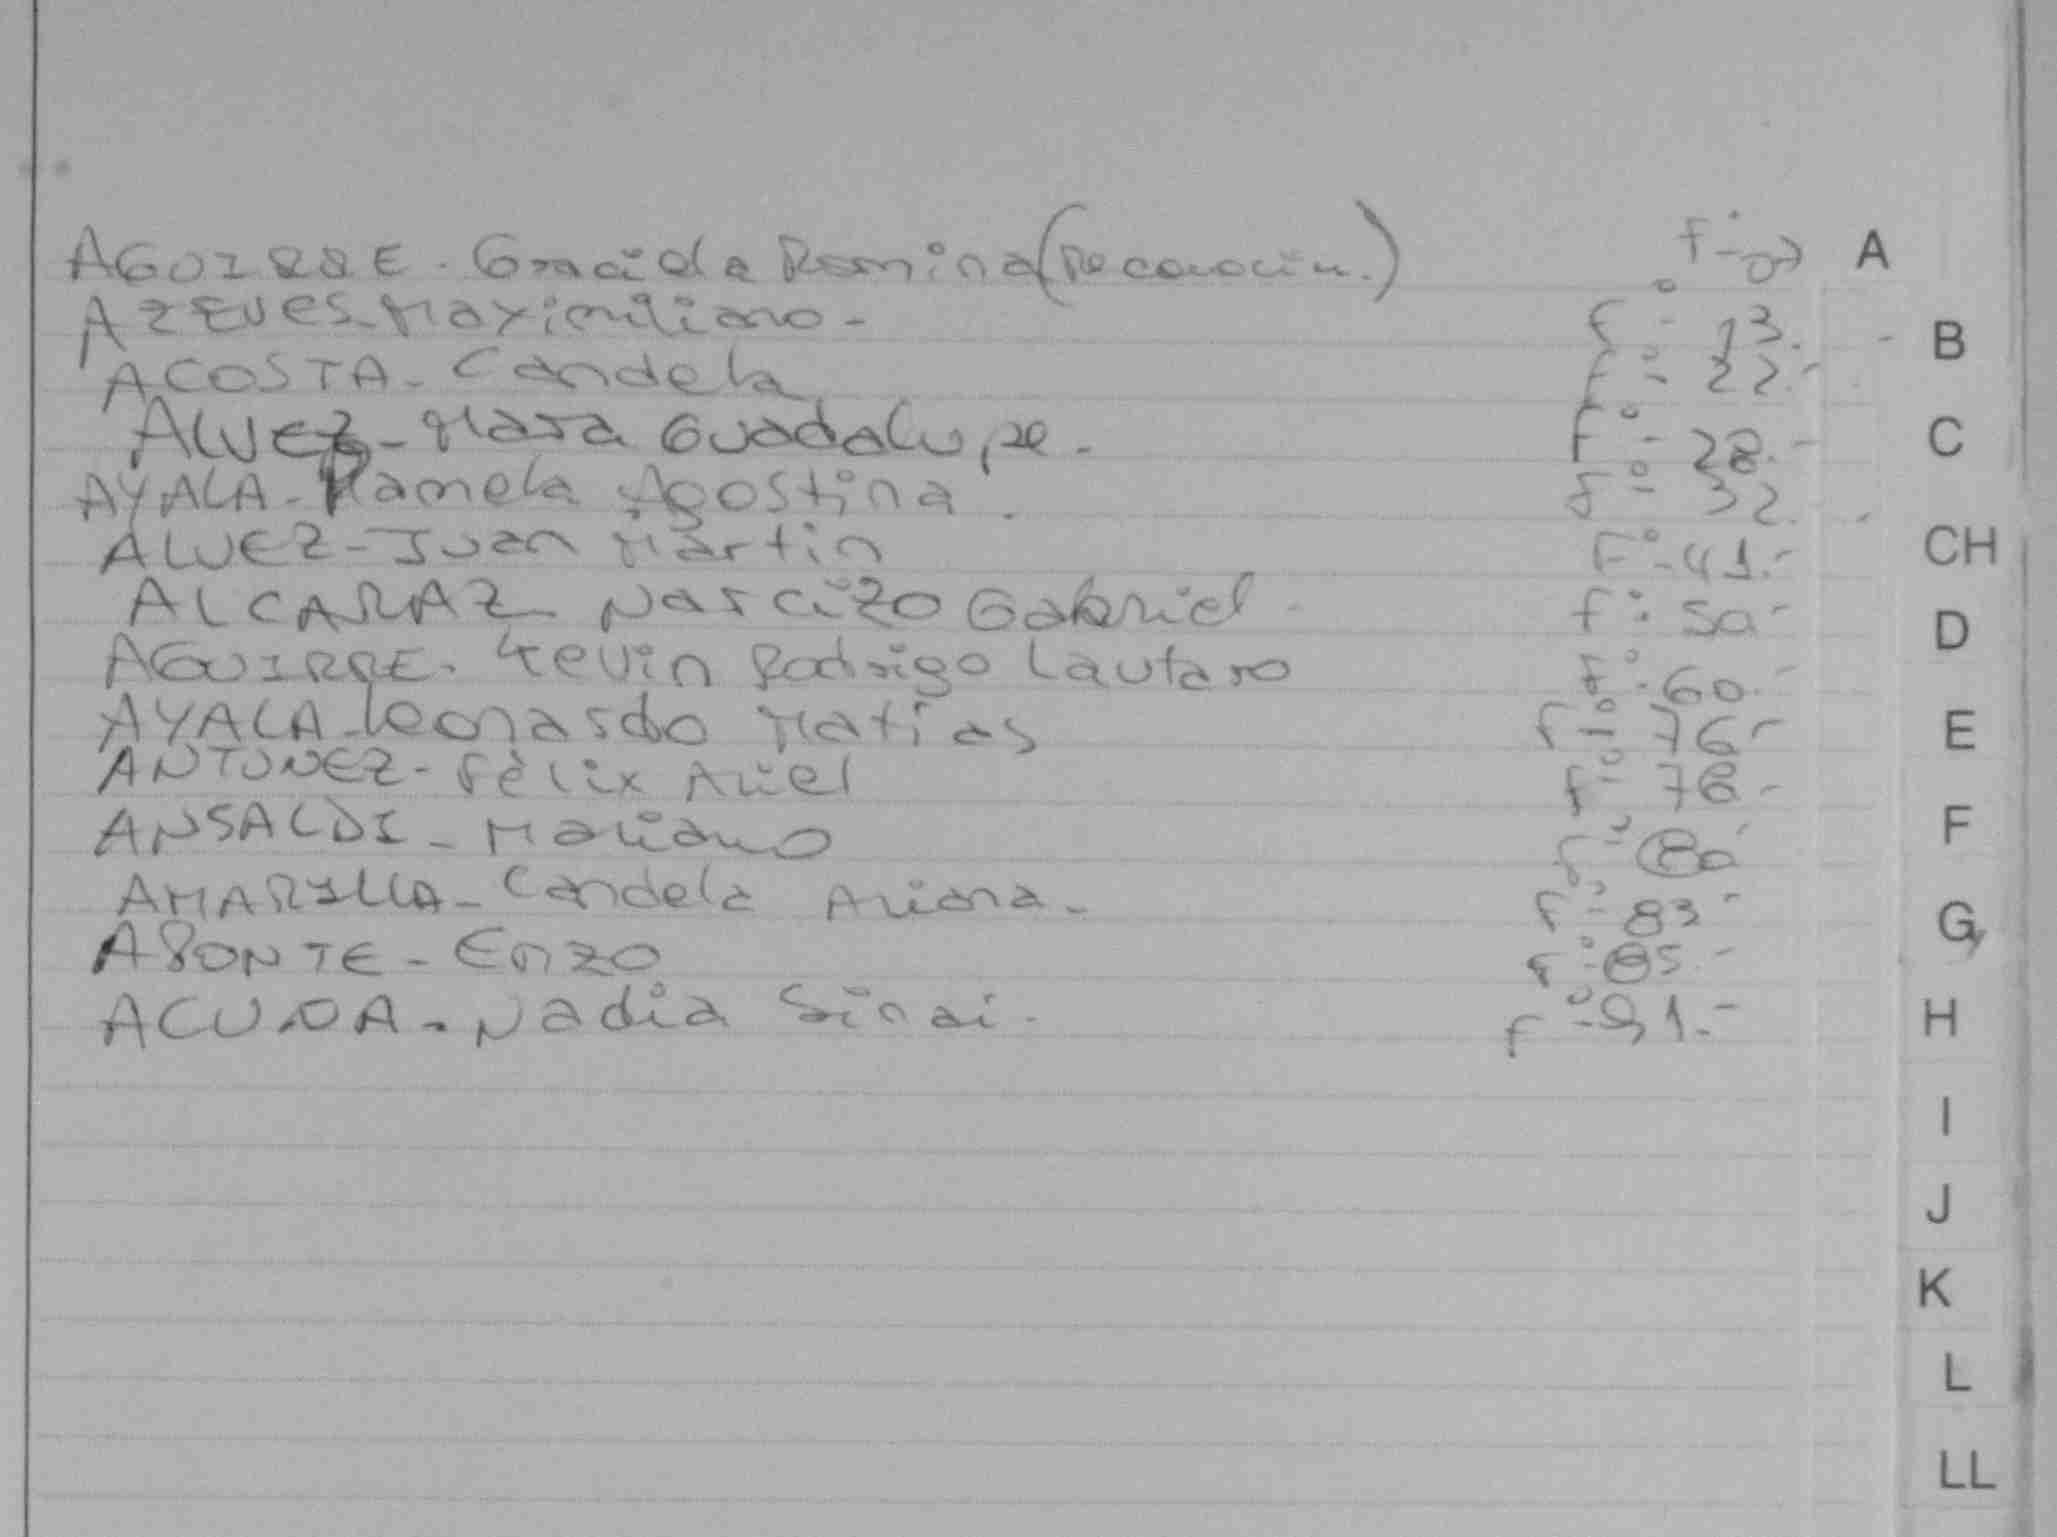 AGUIRRE. Graciela Romina (Reconocim.) f° A
AZEVES Maximiliano - f° 13. - B
ACOSTA - Candela f° 22. -
ALVEZ - Mara Guadalupe. f° 28. - C
AYALA - Pamela Agostina. f° 32. -
ALVEZ - Juan Martin F° 41. - CH
ALCARAZ Narcizo Gabriel. f° 50 - D
AGUIRRE. Kevin Rodrigo Lautaro f° 60. -
AYALA Leonardo Matías f° 76 - E
ANTUNEZ - Félix Ariel f° 78 -
ANSALDI - Mariano f° 80 F
AMARILLA - Candela Ariana - f° 83 - G
APONTE - Enzo f° 85. -
ACUÑA - Nadia Sinai. f° 91. - H
I
J
K
L
LL